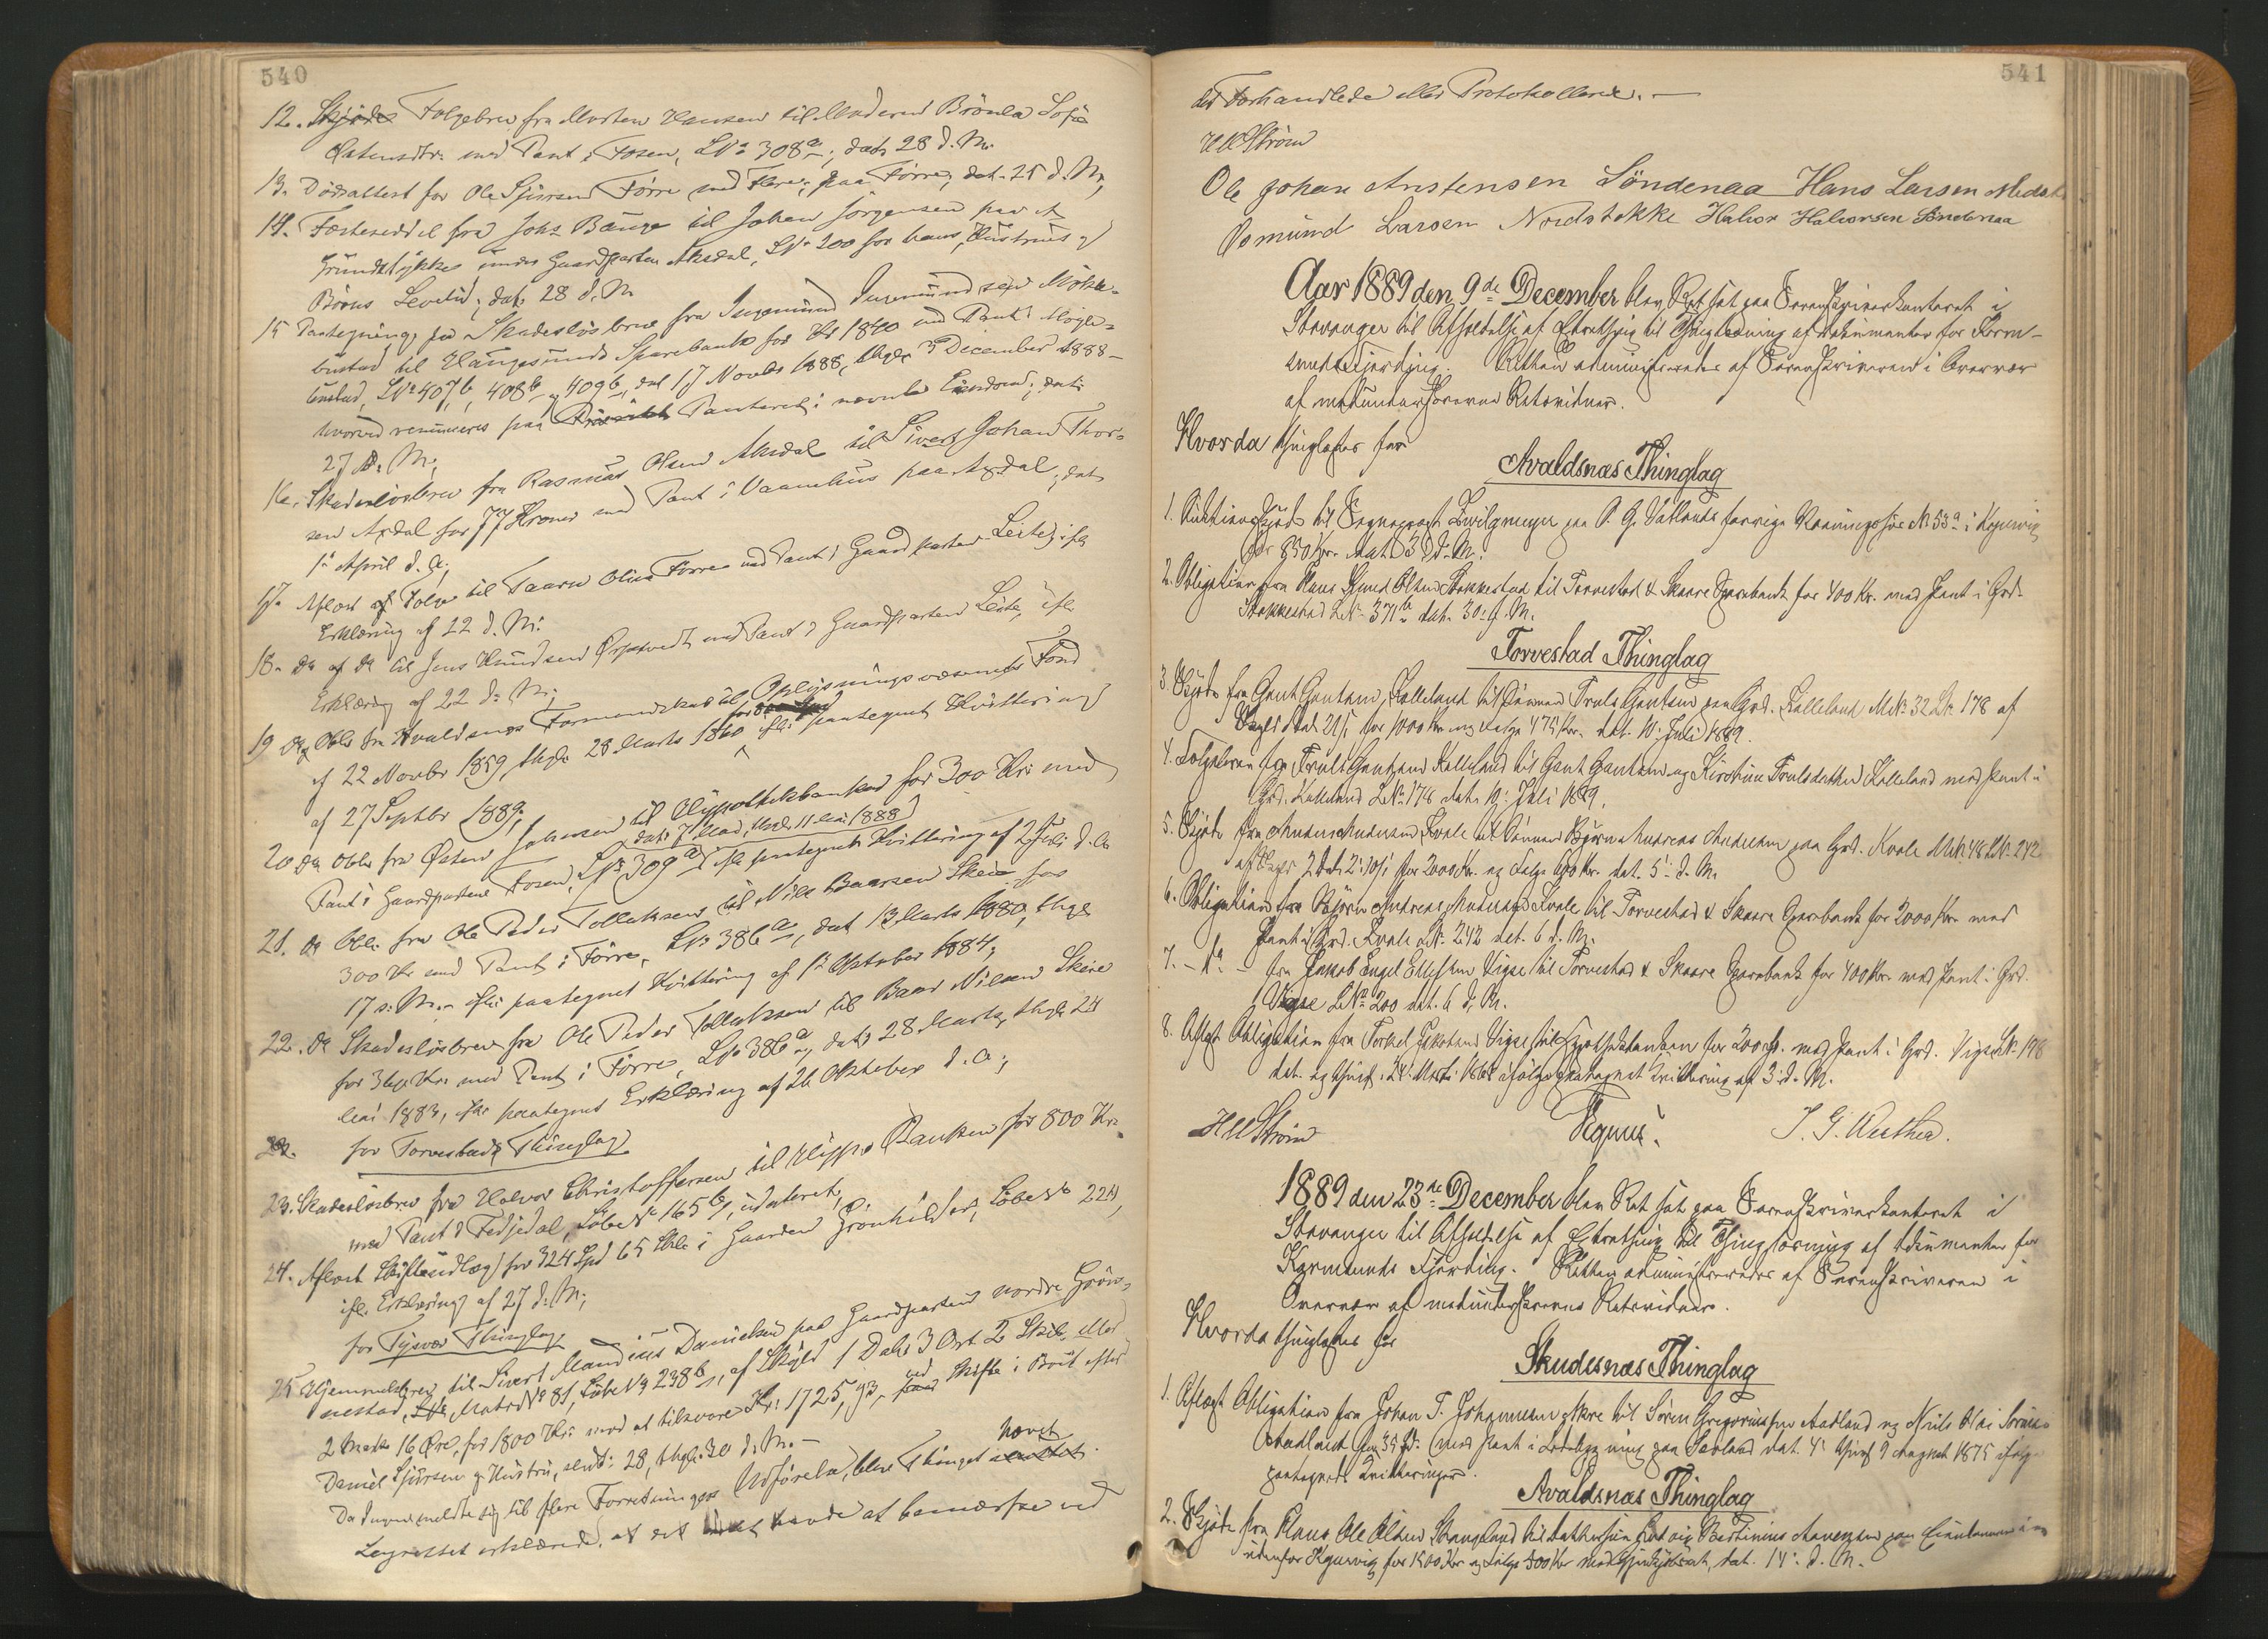 540
12. Skjøde Følgebrev fra Morten Hansen til Moderen Brönla Sofie
Østensdtr. med Pant i Fosen, LNo 308a; dat. 28 d. M.
13. Dödsattest for Ole Sjursen Førre med Flere, paa Førre, dat. 25 d. M.,
14. Festeseddel fra Johs Bauge til Johan Jørgensen paa et
Grundstykke under Gaardparten Aksdal, LNo 200 for hans, Hustrus og
Börns Levetid, dat. 28 d. M.
15 Paategning paa Skadeslösbrev fra Ingemund Ingemundsen
bustad til Haugesunds Sparebank for Kr 1840 med Pant i
bustad, LNo 407b, 408b og 409b, dat 17 Novbr 1888, thgl. 3 December 1888 –
hvorved renunceres paa Panteret i nævnte Eiendom; dat.
27 d. M.;
16. Skadeslösbrev fra Rasmus Olsen Aksdal til Sivert Johan Thor-
sen Axdal for 77 Kroner med Pant i Vaanehus paa Axdal, dat.
1ste April d. A.;
17. Aflæst af Folge til Taaren Olina Førre med Pant i Gaardparten Leite, ifl.
Erklæring af 22 d. M.
18. Do af Do til Jens Knudsen med Pant i Gaardparten Leite, ifl.
Erklæring af 22 d. M.;
19 Do Obl. fra Avaldsnes Formandskab til Oplysningsvæsenets Fond
af 22 Novbr 1859 thgl. 28 Marts 1860 ifl. paategnet Kvittering
af 27 Septbr 1889;
20 Do Obl. fra Østen Johnsen til Hypothekbanken for 300 Kr. med
dat. 7 Mai, thgl. 11 Mai 1888
Pant i Gaardparten Fosen, LNo 309a, ifl. paategnet Kvittering af 2 Juli d. A.
21. Do Obl. fra Ole Peder Tollaksen til Nils Baarsen Skeie for
300 Kr med Pant i Førre, LNo 386a, dat 13 Marts 1880, thgl.
17 s. M. – ifl. paategnet Kvittering af 1ste Oktober 1884;
22. Do Skadeslösbrev fra Ole Peder Tollaksen til Baar Nilsen Skeie
for 360 Kr. med Pant i Førre, LNo 386a, dat. 28 Marts, thgl. 24
Mai 1883, ifl. paategnet Erklæring af 26 Oktober d. A.;
for Torvestads Thinglag
23. Skadeslösbrev fra Halvor Christoffersen til Hypo. Banken for 800 Kr.
med Pant i Fedjedal, LöbeNo 165b, udateret,
24. Aflæst Skifteudlæg for 324 Spd 65 Skl. i Gaarden LöbeNo 224,
ifl. Erklæring af 27 d. M.;
for Tysvær Thinglag
25 Hjemmelsbrev til Sivert Mandius Danielsen paa Gaardparten nordre Grön-
nestad, MatrNo 81, LöbeNo 238b, af Skyld 1 Daler 3 Ort 2 Skil., eller
2 Mark 16 Øre, for 1800 Kr. mod at tilsvare Kr. 1725,93, ved Skifte i Boet efter
Daniel Sjursen og Hustru, 28, thgl. 30 d. M. –
hævet
Da Ingen meldte sig til flere Forretningers Udförelse, blev Thinget sluttet.
Lagrettet erklærede at det Intet havde at bemærke ved
541
det Forhandlede eller Protokollerede. –
HMStröm
Ole Johan Anstensen Söndenaa Hans Larsen
Osmund Larsen Nordstokke Halvor Halvorsen Söndenaa
Aar 1889 den 9de December blev Ret sat paa Sorenskriverkontoret i
Stavanger til Afholdelse af Extrathing til Thinglæsning af Dokumenter for Karm-
sunds Fjerding. Retten administreredes af Sorenskriveren i Overvær
af medunderskrevne Retsvidner.
Hvorda thinglæstes for
Avaldsnæs Thinglag
1. Auktionsskjøde til Sogneprest Zwilgmeyer paa P. G. Vatlands forrige Vaaningshus No 53a i Kopervig
for 850 Kr. dat. 3 d. M.
2. Obligation fra Klaus Knud Olsen Stokkestad til Torvestad & Skaare Sparebank for 400 Kr. med Pant i Grd.
Stokkestad LNo 371b dat. 30 f. M.
Torvestad Thinglag
3 Skjøde fra Gaut Gautsen Kalleland til Sönnen Truls Gautsen paa Grd. Kalleland MNo 32 LNo 178 af
Skyld for 1000 Kr. og Folge 475 Kr. dat. 10 Juli 1889.
4. Folgebrev fra Truls Gautsen Kalleland til Gaut Gautsen og Kirstine Trulsdatter Kalleland med Pant i
Grd. Kalleland LNo 178 dat. 10 Juli 1889.
5. Skjøde fra Anders Andersen Kvale til Sönnen Björn Andreas Andersen paa Grd. Kvale MNo 48 LNo 242
af Skyld for 2000 Kr. og Folge 600 Kr. dat. 5 d. M.
6. Obligation fra Björn Andreas Andersen Kvale til Torvestad & Skaare Sparebank for 2000 Kr. med
Pant i Grd. Kvale LNo 242 dat. 6 d. M.
7. – do – fra Jakob Engel Ellefsen Vigse til Torvestad & Skaare Sparebank for 400 Kr. med Pant i Grd.
Vigse LNo 200 dat. 6 d. M.
8. Aflæst Obligation fra Torkel Vigse til Hypothekbanken for 200 Spd. med Pant i Grd. Vigse LNo 198
dat. og thingl. 24 Marts ifølge paategnet Kvittering af 3 d. M.
HMStröm
J. G. Werther.
1889 den 23de December blev Ret sat paa Sorenskriverkontoret i
Stavanger til Afholdelse af Extrathing til Thinglæsning af Dokumenter for
Karmsunds Fjerding. Retten administreredes af Sorenskriveren i
Overvær af medunderskrevne Retsvidner.
Hvorda thinglæstes for
Skudesnæs Thinglag
1. Aflæst Obligation fra Johan T. Johannesen til Sören Gregoriussen Aadland og Niels
Aadland for 35 Spd. med Pant i paa dat. 4 thingl. 9 August 1875 ifølge
paategnede Kvitteringer.
Avaldsnæs Thinglag
2. Skjøde fra Klaus Ole Olsen Stangeland til Bertinius Aanensen paa
udenfor Kopervig for 1500 Kr. og Folge 300 Kr. dat. 14 d. M.